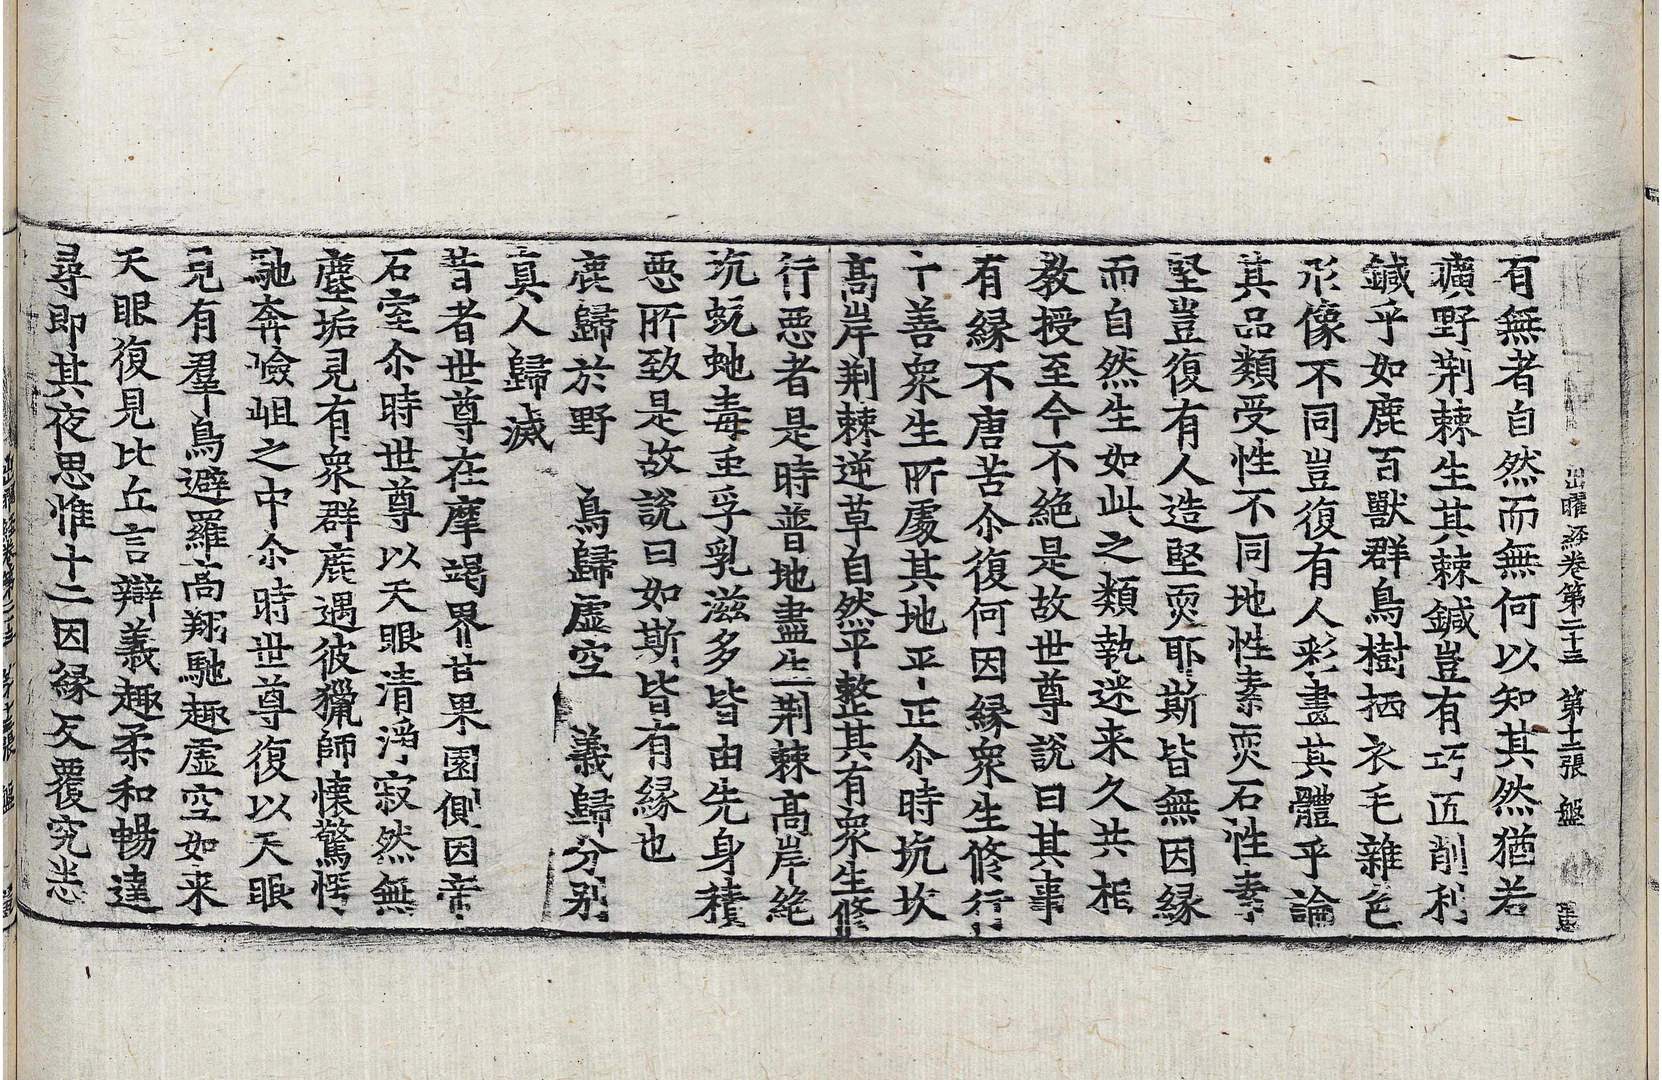 出曜経卷第二十三 第十二張 盤
有無者自然而無何以知其然猶若
曠野荆棘生其棘鍼豈有巧匠削利
鍼乎如鹿百獸群鳥樹栖衣毛雜色
形像不同豈復有人彩畫其體乎論
其品類受性不同地性素耎石性素
堅豈復有人造堅耎耶斯皆無因緣
而自然生如此之類執迷来久共相
教授至今不絶是故世尊說曰其事
有緣不唐苦尒復何因緣衆生修行
十善衆生所處其地平正尒時坑坎
髙岸荆棘逆草自然平整其有衆生修
行惡者是時普地盡生荆棘髙岸絶
坑蚖虵毒虫孚乳滋多皆由先身積
惡所致是故說曰如斯皆有緣也
鹿歸於野 鳥歸虛空 義歸分别
真人歸滅
昔者世尊在摩竭界甘果園側因帝
石室尒時世尊以天眼清淨寂然無
塵垢見有衆群鹿遇彼獵師懷驚愕
馳奔嶮岨之中尒時世尊復以天眼
見有羣鳥避羅髙翔馳趣虛空如来
天眼復見比丘言辯義趣柔和暢達
尋即其夜思惟十二因緣反覆究悉